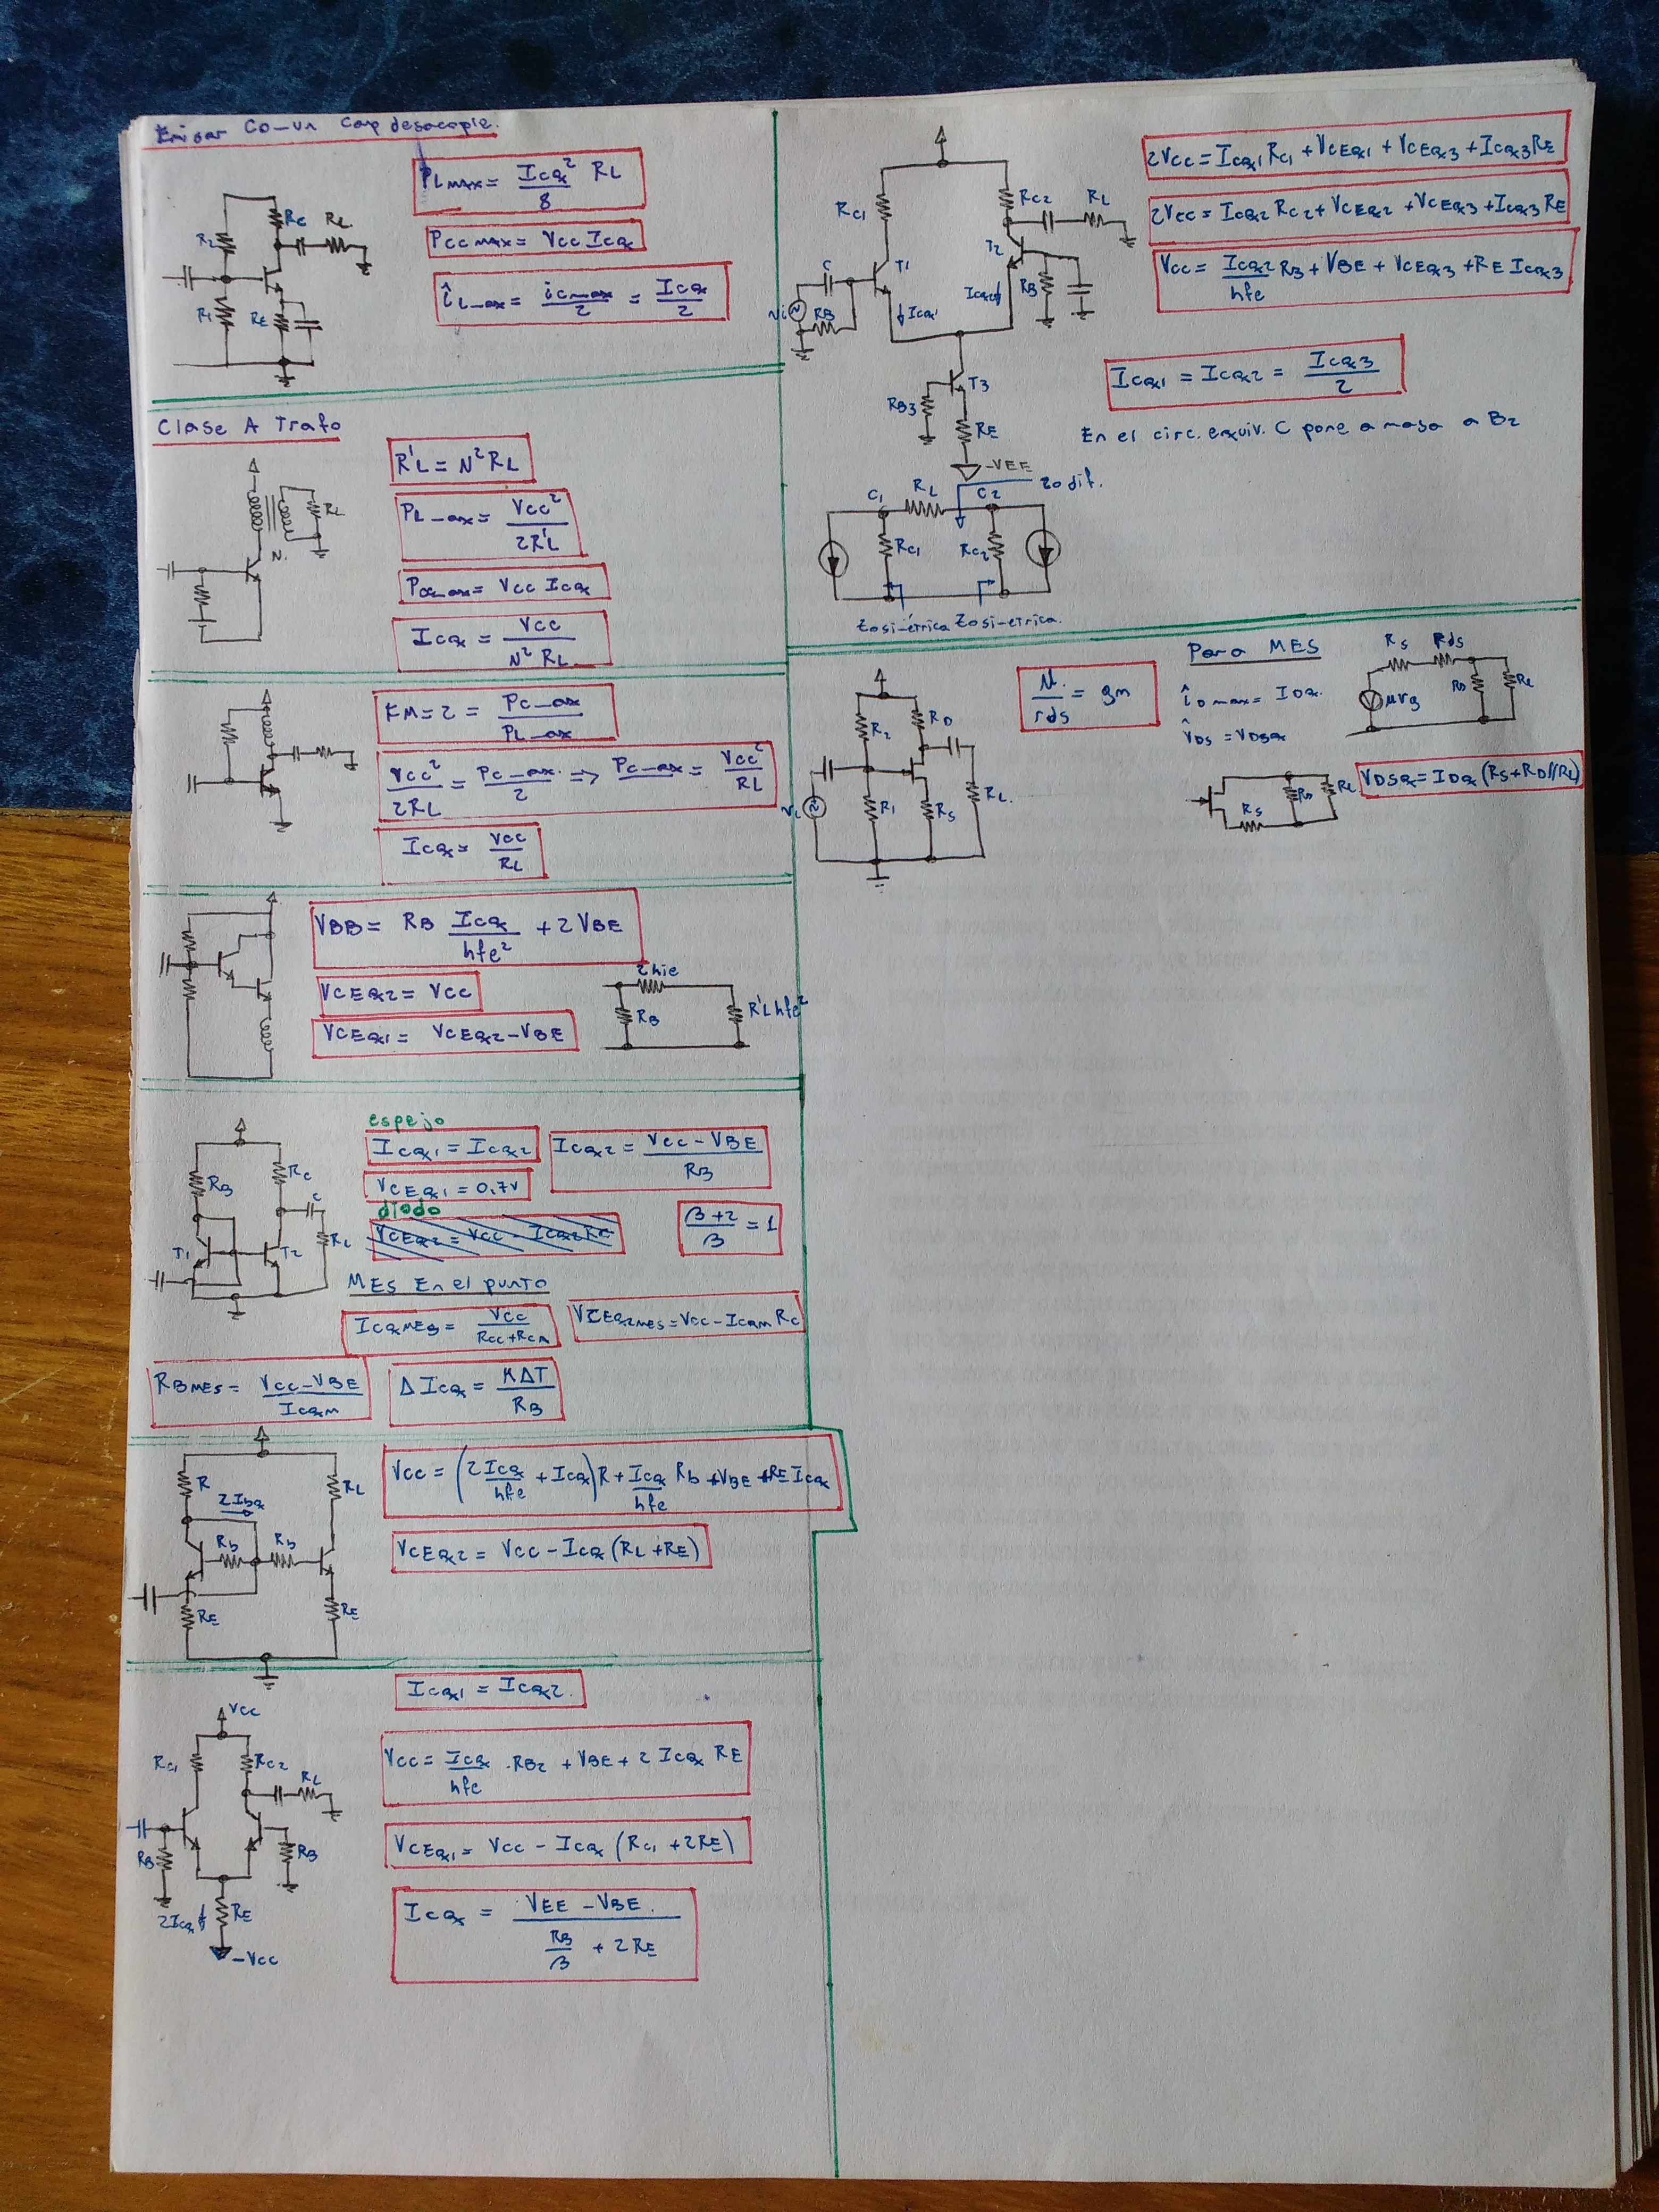 Emisor Común Cap desacople.
R2
RC
RL
R1
RE
PLmax = ICQ² RL / 8
PCCmax = VCC ICQ
îLmax = icmax / 2 = ICQ / 2
Clase A Trafo
RL
N.
R'L = N² RL
PLmax = VCC² / 2R'L
PCCmax = VCC ICQ
ICQ = VCC / N² RL
FM = 2 = PCmax / PLmax
VCC² / 2RL = PCmax / 2 => PCmax = VCC² / RL
ICQ = VCC / RL
VBB = RB ICQ / hfe² + 2VBE
VCEQ2 = VCC
VCEQ1 = VCEQ2 - VBE
2hie
RB
R'L hfe²
RB
RC
C
RL
T1
T2
espejo
ICQ1 = ICQ2
ICQ2 = VCC - VBE / RB
VCEQ1 = 0.7V
diodo
VCEQ2 = VCC - ICQ2 RC
β+2 / β = 1
MES En el punto
ICQMES = VCC / RCC + RCA
VCEQ2MES = VCC - ICQM RC
RBMES = VCC - VBE / ICQM
Δ ICQ = KΔT / RB
R
RL
2IBQ
Rb
Rb
RE
RE
VCC = (2ICQ / hfe + ICQ) R + ICQ / hfe Rb + VBE + RE ICQ
VCEQ2 = VCC - ICQ (RL + RE)
VCC
RC1
RC2
RL
RB
RB
2ICQ
RE
-VCC
ICQ1 = ICQ2.
VCC = ICQ / hfe · RB2 + VBE + 2 ICQ RE
VCEQ1 = VCC - ICQ (RC1 + 2RE)
ICQ = VEE - VBE. / RB / β + 2RE
RC1
RC2
RL
T1
T2
C
vi
RB
ICQ1
ICQ2
RB
T3
RB3
RE
-VEE
2VCC = ICQ1 RC1 + VCEQ1 + VCEQ3 + ICQ3 RE
2VCC = ICQ2 RC2 + VCEQ2 + VCEQ3 + ICQ3 RE
VCC = ICQ2 / hfe RB + VBE + VCEQ3 + RE ICQ3
ICQ1 = ICQ2 = ICQ3 / 2
En el circ. equiv. C pone a masa a B2
C1
RL
C2
Zo dif.
RC1
RC2
Zosimétrica
Zosimétrica.
R2
RD
R1
RS
RL.
vi
μ / rds = gm
Para MES
îDmax = IDQ.
v̂DS = VDSQ
RS
rds
μvg
RD
RL
RS
RD
RL
VDSQ = IDQ (RS + RD//RL)